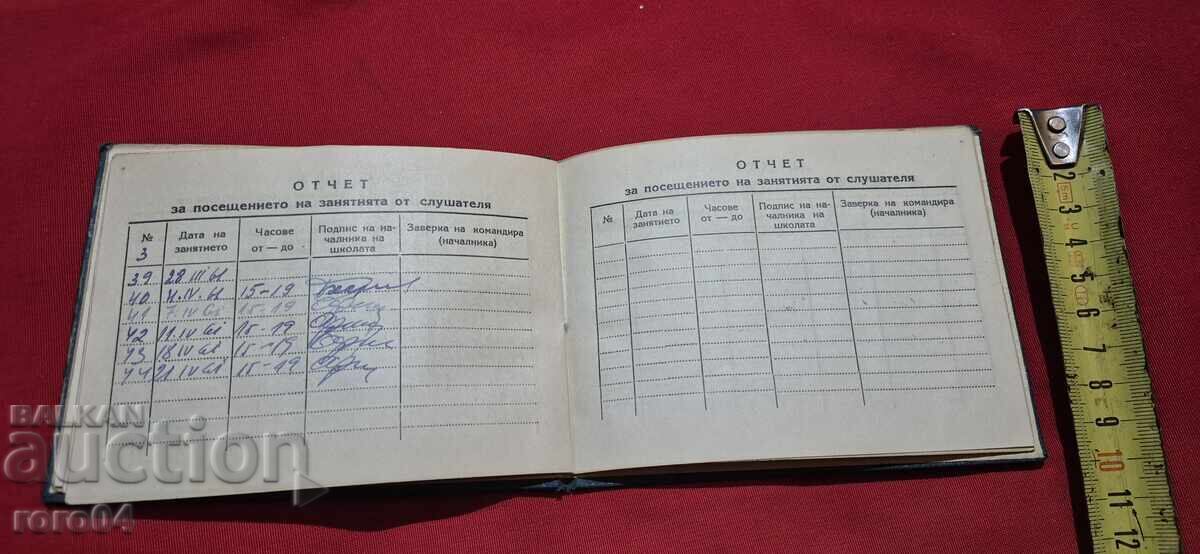 ОТЧЕТ
за посещението на занятията от слушателя
№ Дата на занятието Часове от — до Подпис на началника на школата Заверка на командира (началника)
3
39 28 III 61
40 4. IV. 61 15-19
41 7. IV 61 15-19
42 11 IV 61 15-19
43 18 IV 61 15-19
44 21 IV 61 15-19
ОТЧЕТ
за посещението на занятията от слушателя
№ Дата на занятието Часове от — до Подпис на началника на школата Заверка на командира (началника)
2
3
4
5
6
7
8
9
10
11
12
BALKAN
auction
roro04